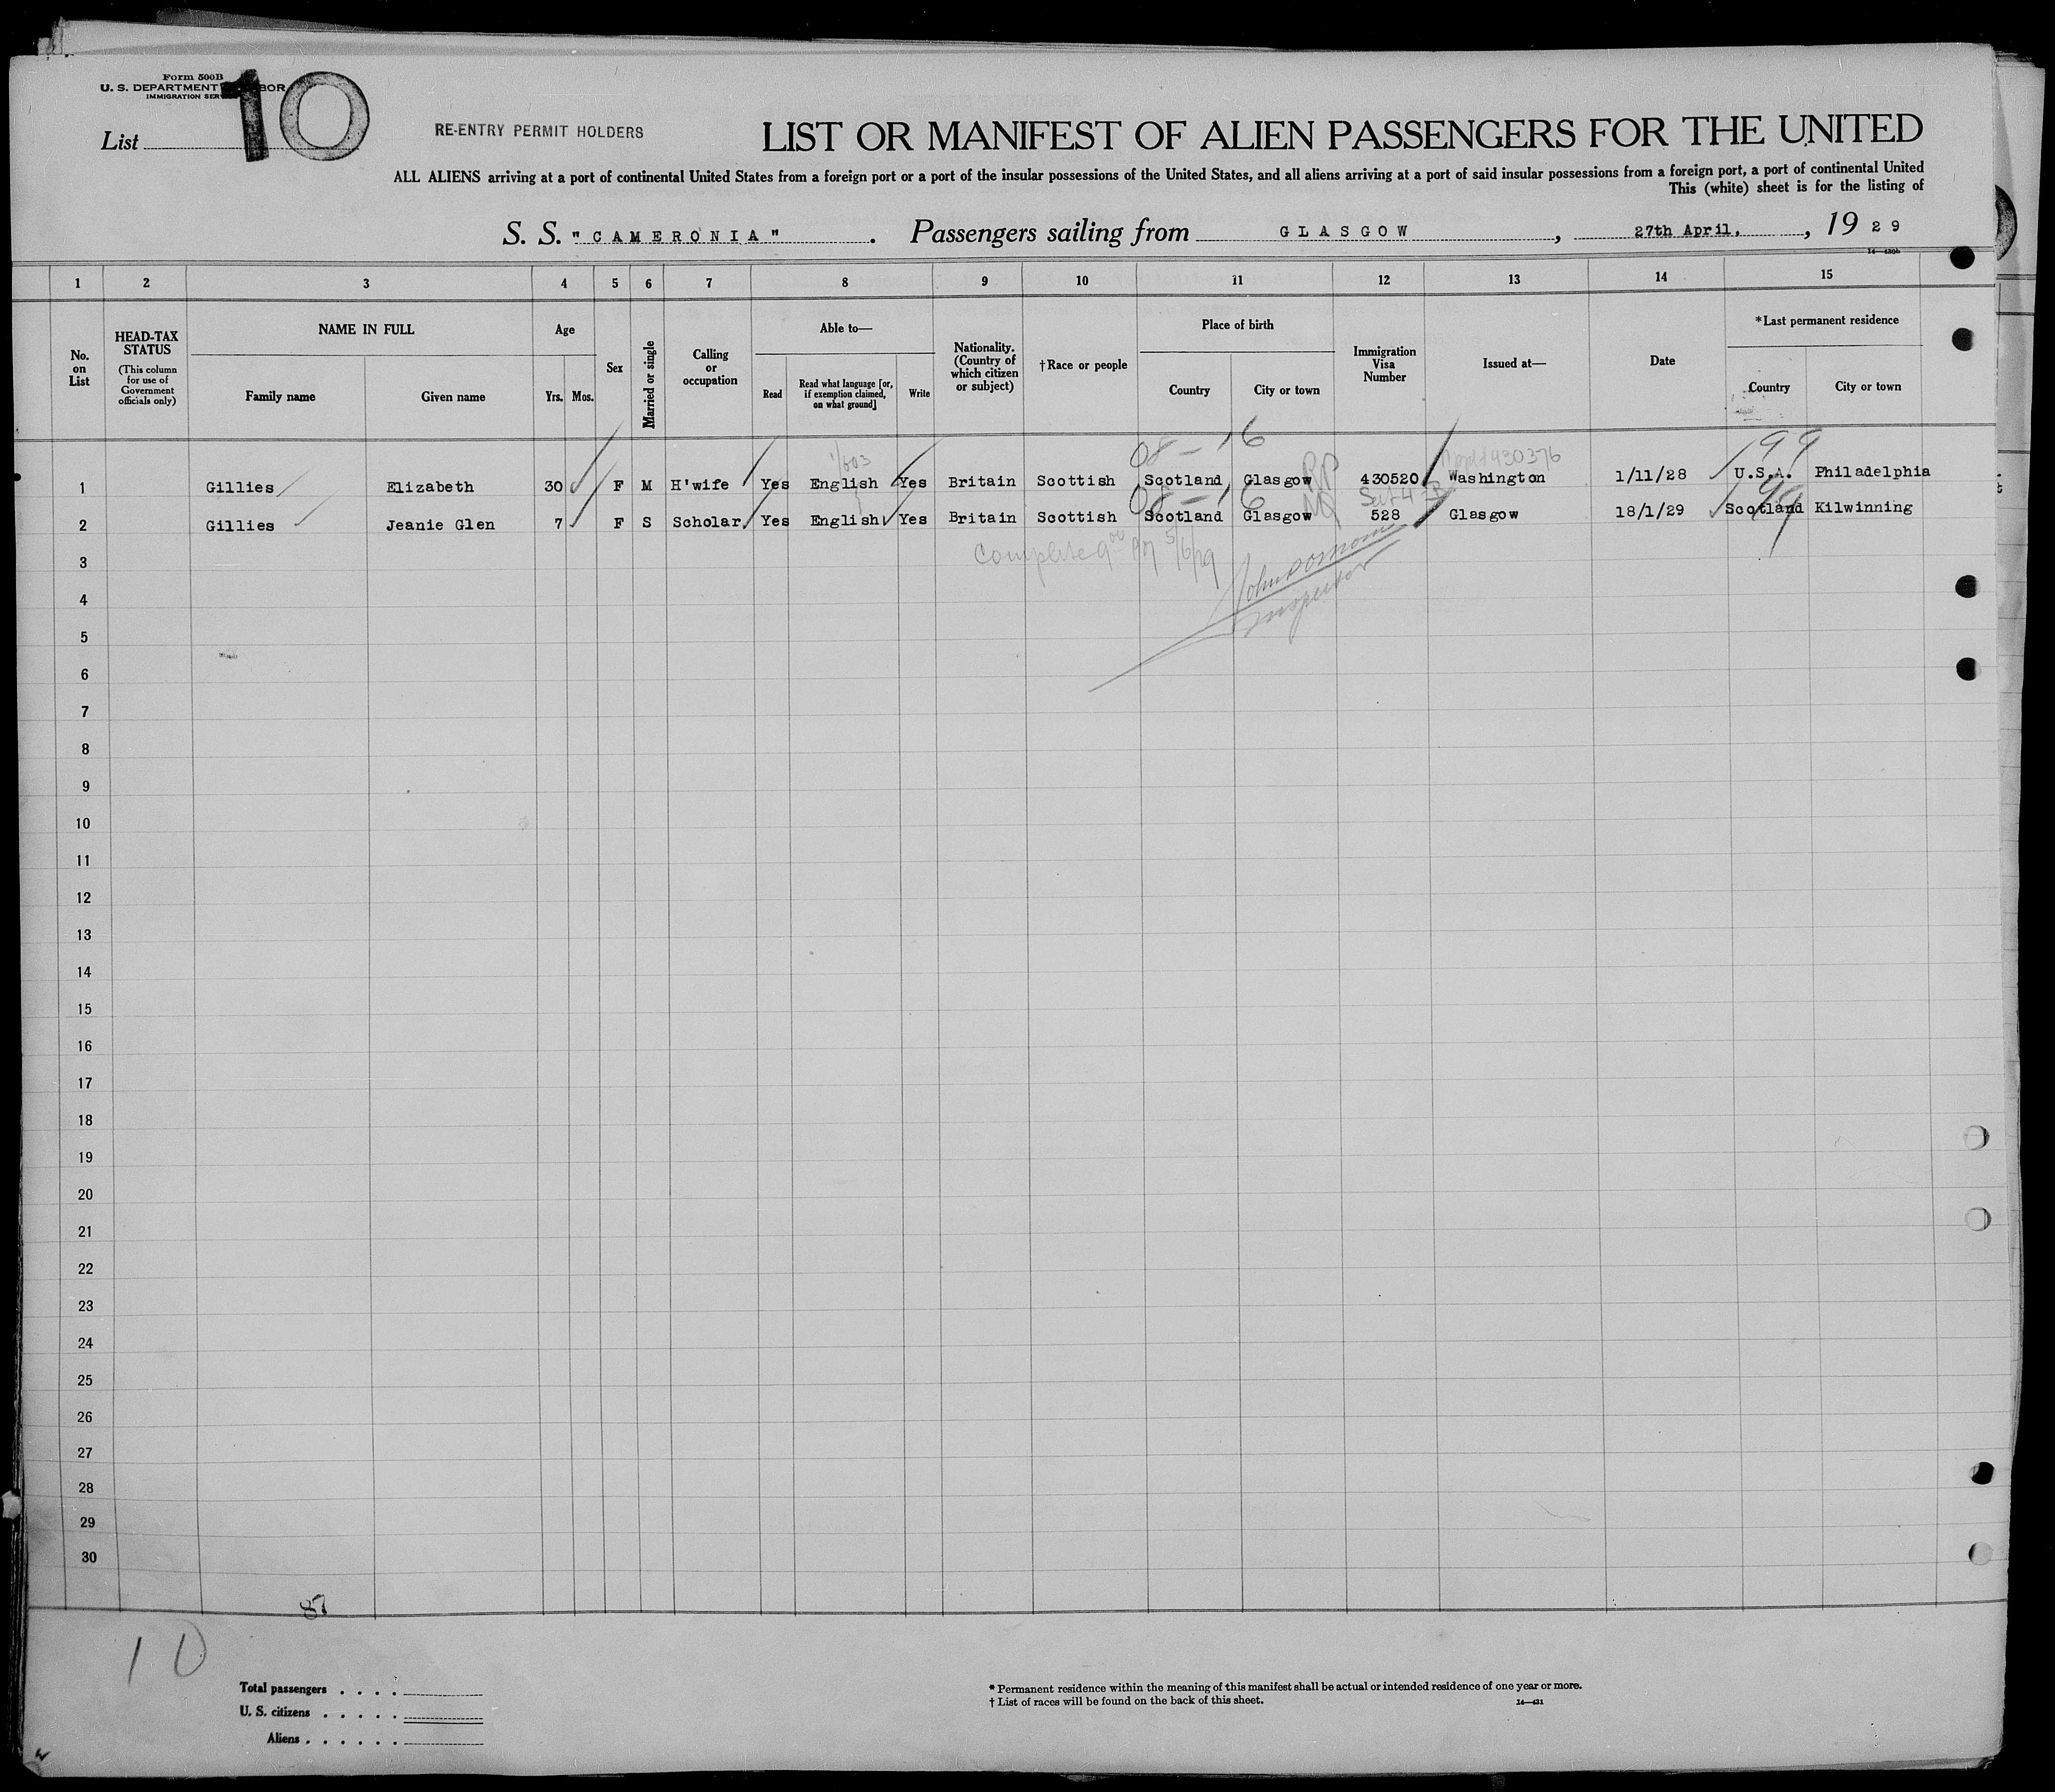 Form 500B
U. S. DEPARTMENT
IMMIGRATION
List 10
RE-ENTRY PERMIT HOLDERS
LIST OR MANIFEST OF ALIEN PASSENGERS FOR THE UNITED
ALL ALIENS arriving at a port of continental United States from a foreign port or a port of the insular possessions of the United States, and all aliens arriving at a port of said insular possessions from a foreign port, a port of continental United
This (white) sheet is for the listing of
S. S. "CAMERONIA". Passengers sailing from GLASGOW, 27th April, , 19 29
14—430b
1 2 3 4 5 6 7 8 9 10 11 12 13 14 15
No. on List
HEAD-TAX STATUS
(This column for use of Government officials only)
NAME IN FULL
Family name Given name
Age
Yrs. Mos.
Sex
Married or single
Calling or occupation
Able to—
Read
Read what language [or, if exemption claimed, on what ground]
Write
Nationality. (Country of which citizen or subject)
†Race or people
Place of birth
Country City or town
Immigration Visa Number
Issued at—
Date
*Last permanent residence
Country City or town
08 – 16
1/603
430376
99
1 Gillies Elizabeth 30 F M H'wife Yes English Yes Britain Scottish Scotland Glasgow RP 430520 Washington 1/11/28 U.S.A. Philadelphia
08 – 16
Sect 4
99
2 Gillies Jeanie Glen 7 F S Scholar Yes English Yes Britain Scottish Scotland Glasgow 528 Glasgow 18/1/29 Scotland Kilwinning
3
Complete 9 00 5/6/29
4
Inspector
5
6
7
8
9
10
11
12
13
14
15
16
17
18
19
20
21
22
23
24
25
26
27
28
29
30
87
10
Total passengers . . . .
U. S. citizens . . . . .
Aliens . . . . . .
* Permanent residence within the meaning of this manifest shall be actual or intended residence of one year or more.
† List of races will be found on the back of this sheet.
14—431